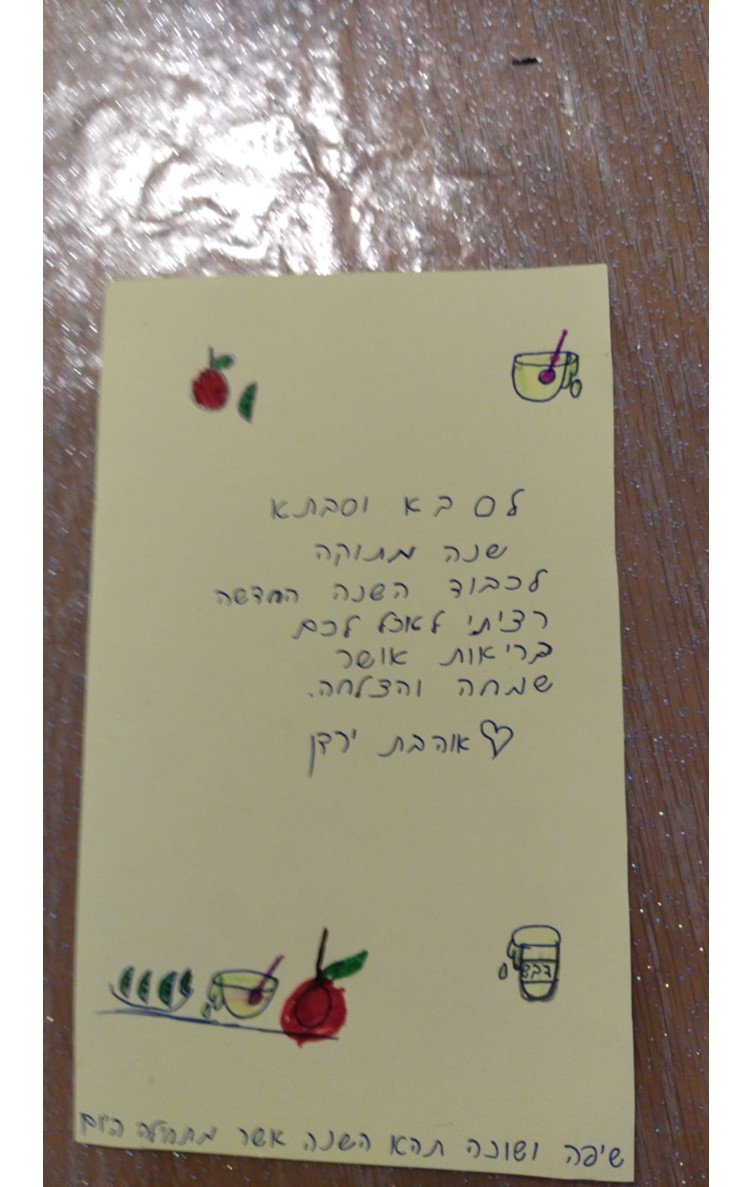 לסבא וסבתא
שנה מתוקה
לכבוד השנה החדשה
רציתי לאחל לכם
בריאות אושר
שמחה והצלחה.
אוהבת ירדן
דבש
שיפה ושונה תהא השנה אשר מתחילה היום